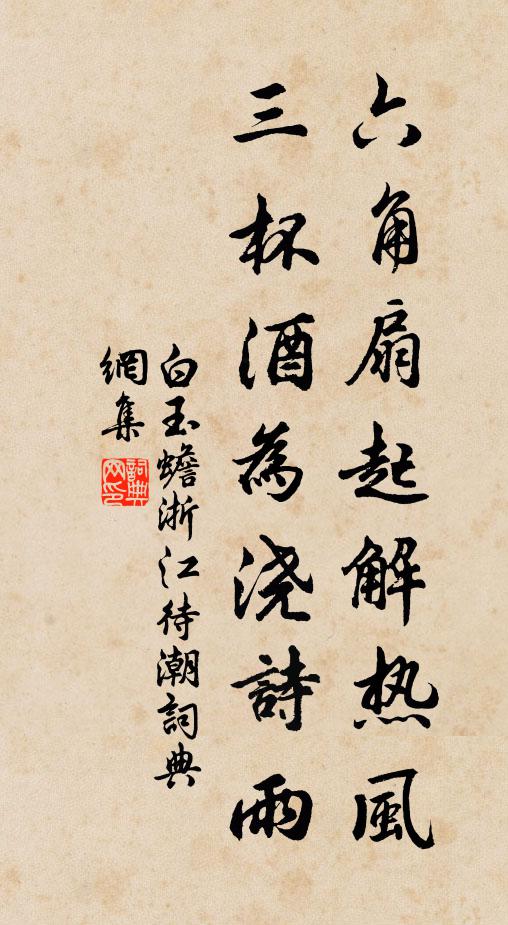 六角扇起解热風
三杯酒為浇詩雨
白玉蟾浙江待潮詞典
網集
詞典网印